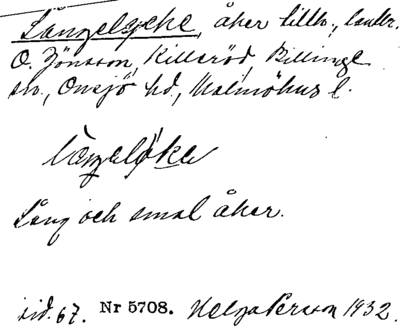 Långelycke, åker tillh., landtr.
O. Jönsson, Killaröd, Billinge
sn., Onsjö hd, Malmöhus l.
Lång och smal åker.
sid. 67. Nr 5708. Helga Persson 1932.